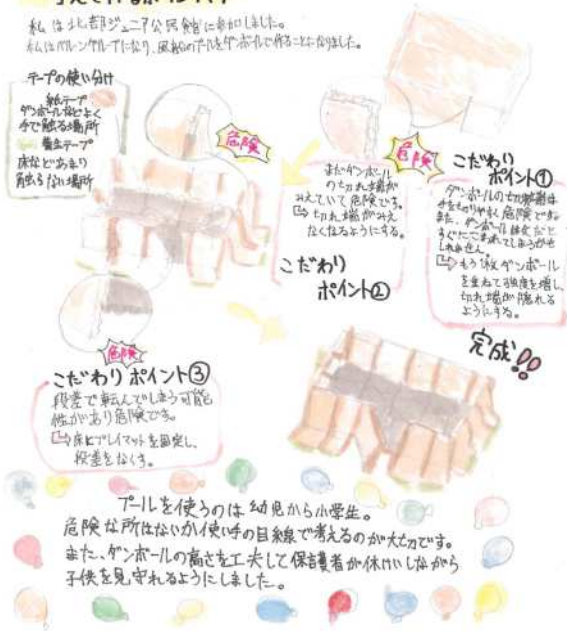 私は北部ジュニア公民館に参加しました。
私はバルーングループになり、風船のプールをダンボールで作ることになりました。
テープの使い分け
紙テープ
ダンボールなどよく
手で触る場所
養生テープ
床などあまり
触らない場所
危険
危険
まだダンボール
の切れ端が
みえていて危険です。
切れ端がみえ
なくなるようにする。
こだわり
ポイント①
ダンボールの切れ端は
手をきりやすく危険です。
また、ダンボール1枚だと
すぐにこわれてしまうかも
しれません。
もう1枚ダンボール
を重ねて強度を増し、
切れ端が隠れる
ようにする。
こだわり
ポイント②
完成!!
危険
こだわりポイント③
段差で転んでしまう可能
性があり危険です。
床にプレイマットを固定し、
段差をなくす。
プールを使うのは幼児から小学生。
危険な所はないか使い手の目線で考えるのが大切です。
また、ダンボールの高さを工夫して保護者が休けいしながら
子供を見守れるようにしました。